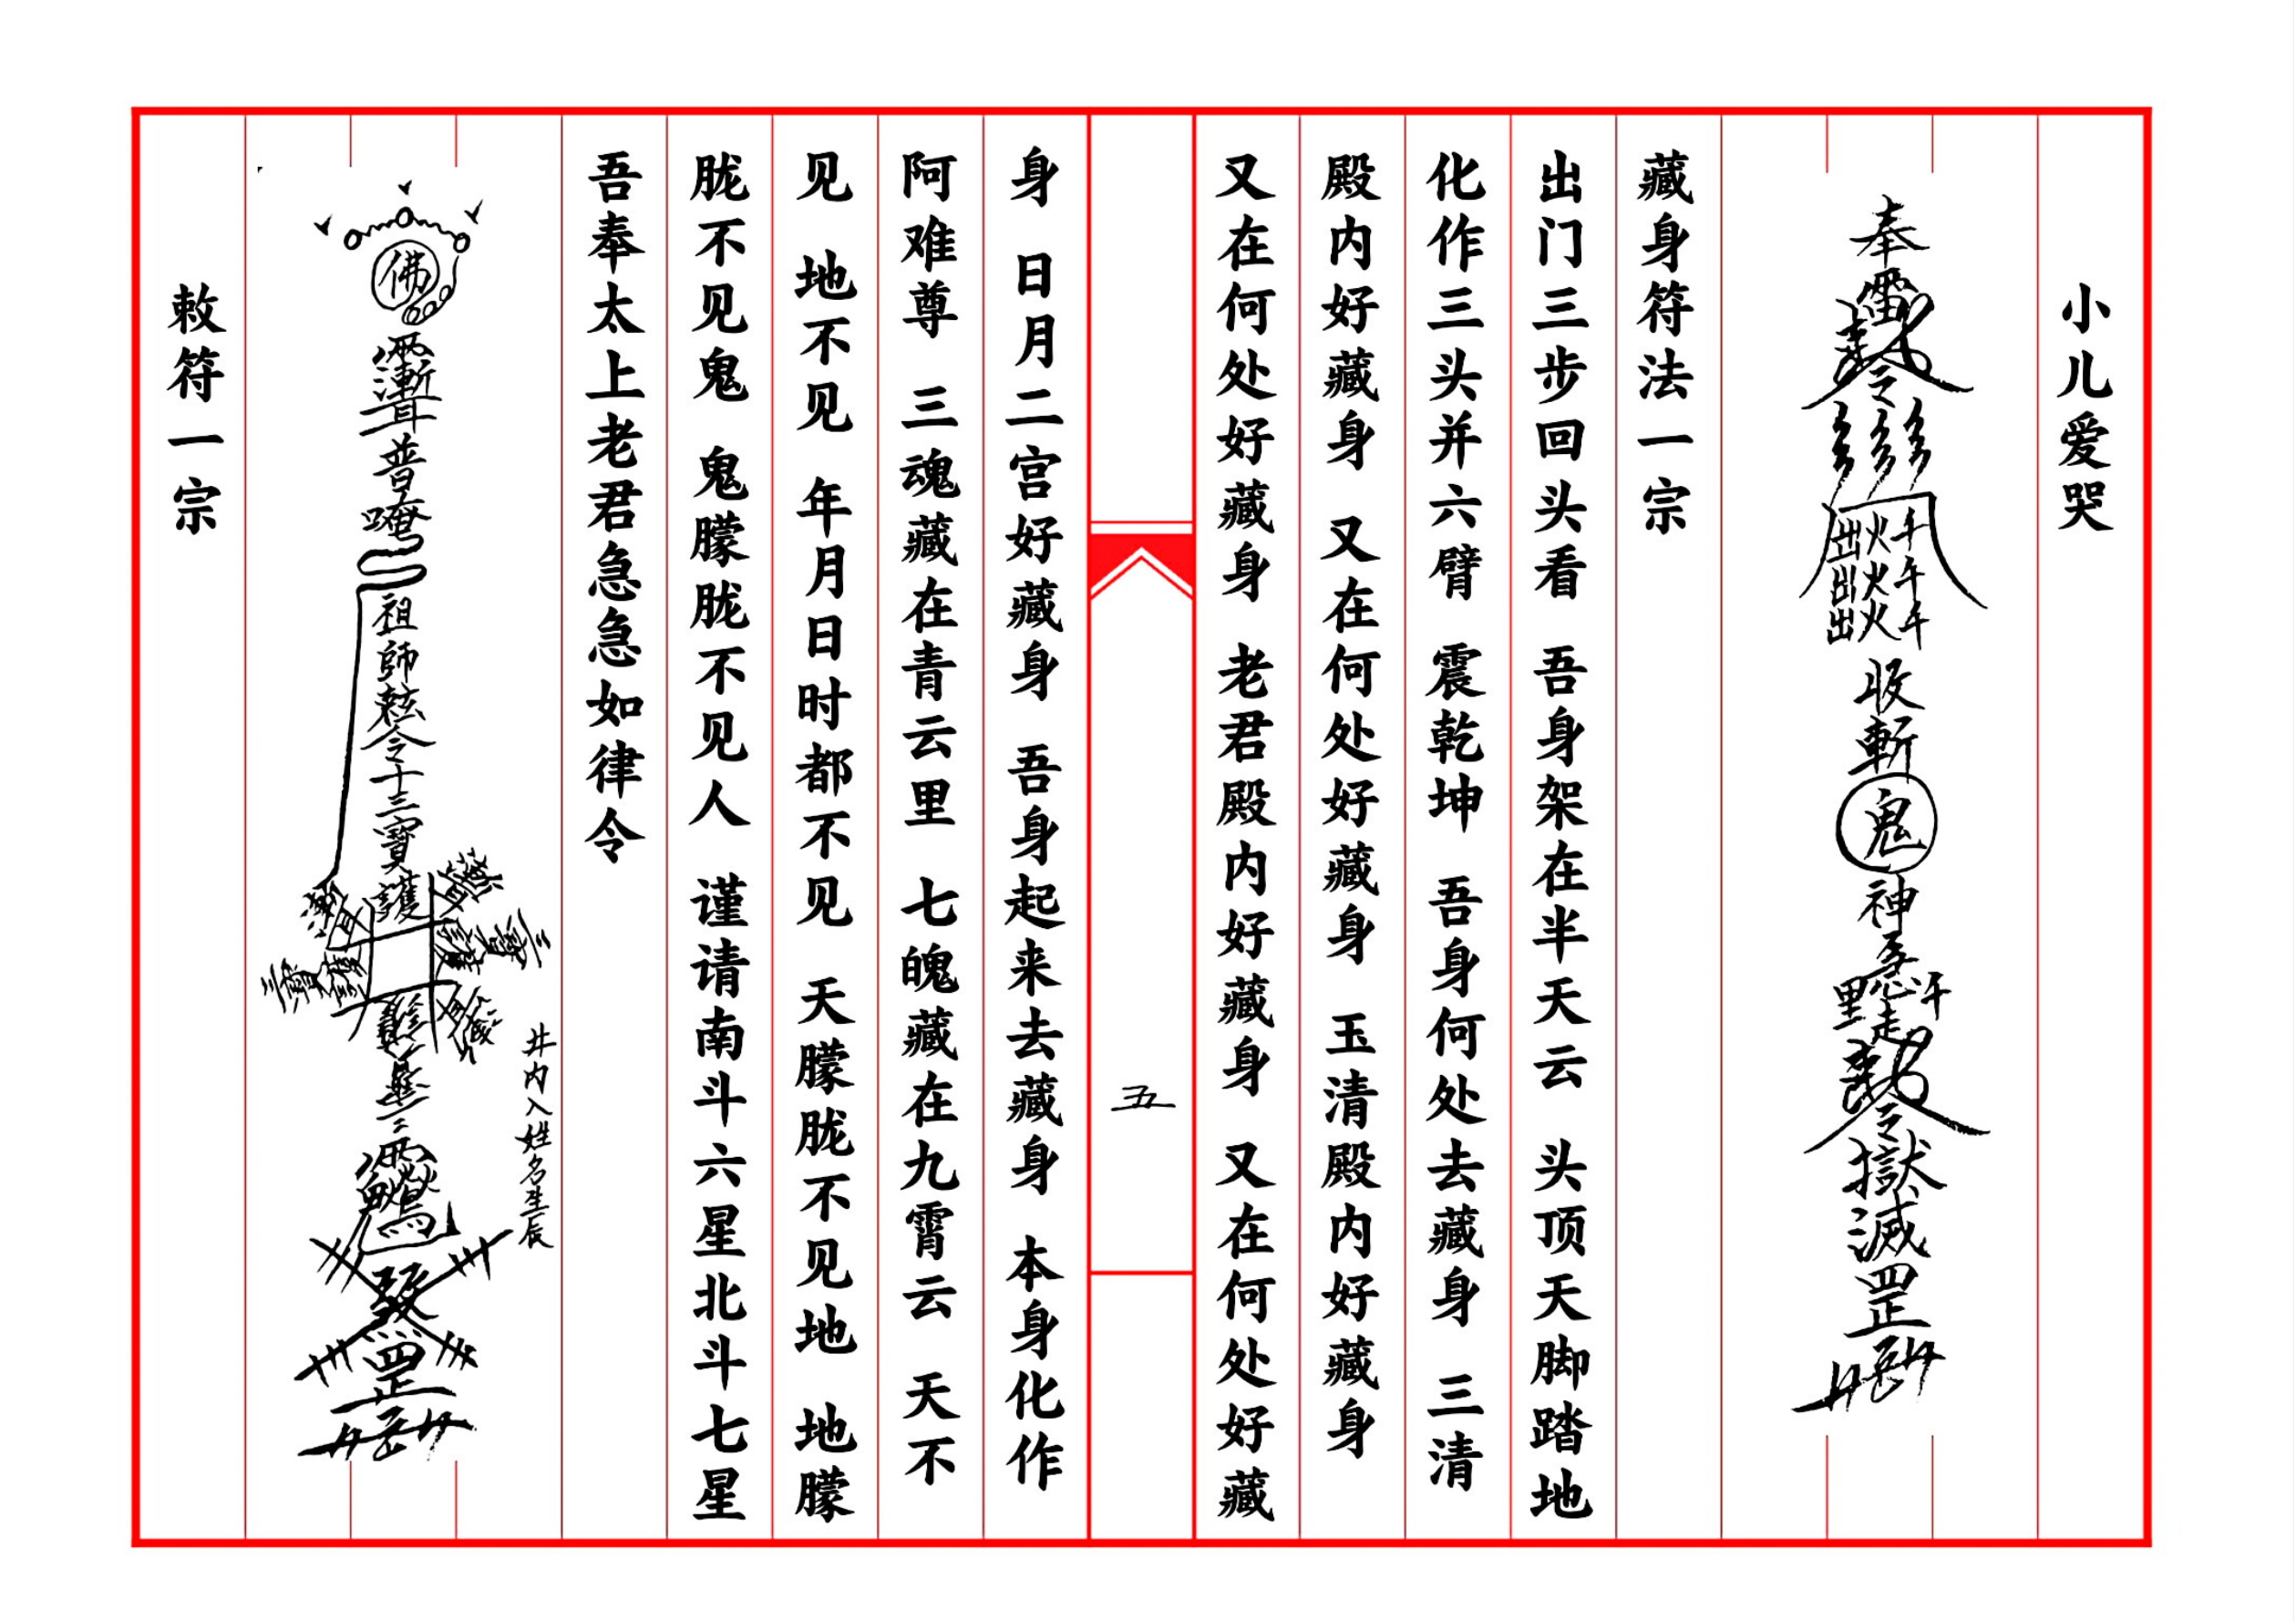 小儿爱哭
奉
收斬鬼神
獄滅罡
藏身符法一宗
出门三步回头看 吾身架在半天云 头顶天脚踏地
化作三头并六臂 震乾坤 吾身何处去藏身 三清
殿内好藏身 又在何处好藏身 玉清殿内好藏身
又在何处好藏身 老君殿内好藏身 又在何处好藏
五
身 日月二宫好藏身 吾身起来去藏身 本身化作
阿难尊 三魂藏在青云里 七魄藏在九霄云 天不
见 地不见 年月日时都不见 天朦胧不见地 地朦
胧不见鬼 鬼朦胧不见人 谨请南斗六星北斗七星
吾奉太上老君急急如律令
井内入姓名生辰
佛
普
祖師
令十三寶
護
罡
敕符一宗